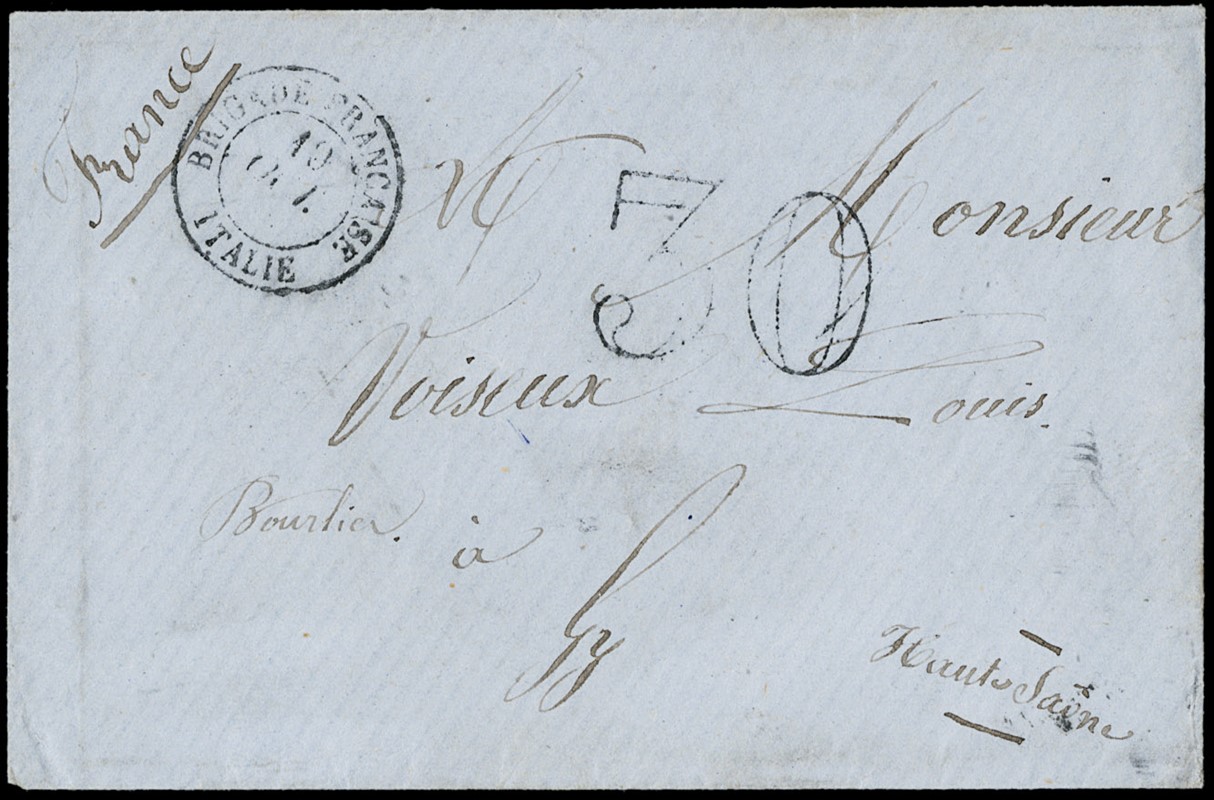 France
BRIGADE FRANCAISE
19
OCT.
ITALIE
30
A Monsieur
Voiseux Louis.
Bourlier. à
Gy
Haute Saône